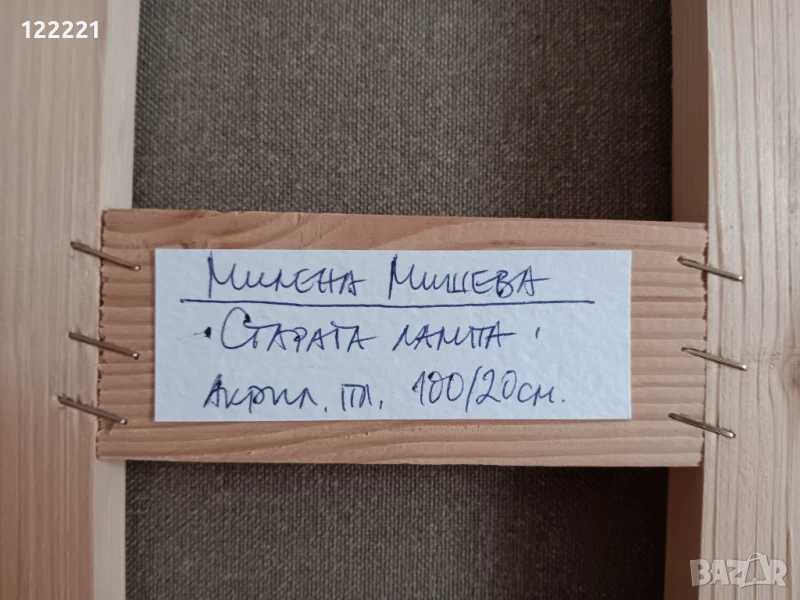 122221
Милена Мишева
"Старата лампа"
Акрил, пл. 100/20 см.
BAZAR